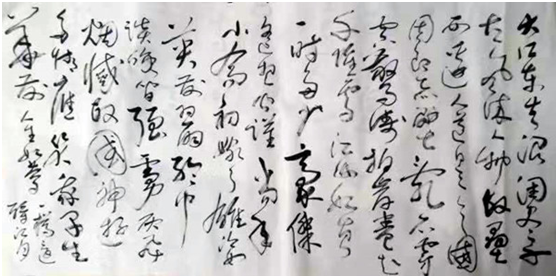 大江东去浪淘尽千
古风流人物故壘
西边人道是三國
周郎赤壁乱石穿
空驚涛拍岸卷起
千堆雪江山如画
一时多少豪傑
遥想公谨当年
小喬初嫁了雄姿
英发羽扇纶巾
谈笑间强虏灰飞
烟滅故國神游
多情应笑我早生
華发人生如夢
一樽還
酹江月